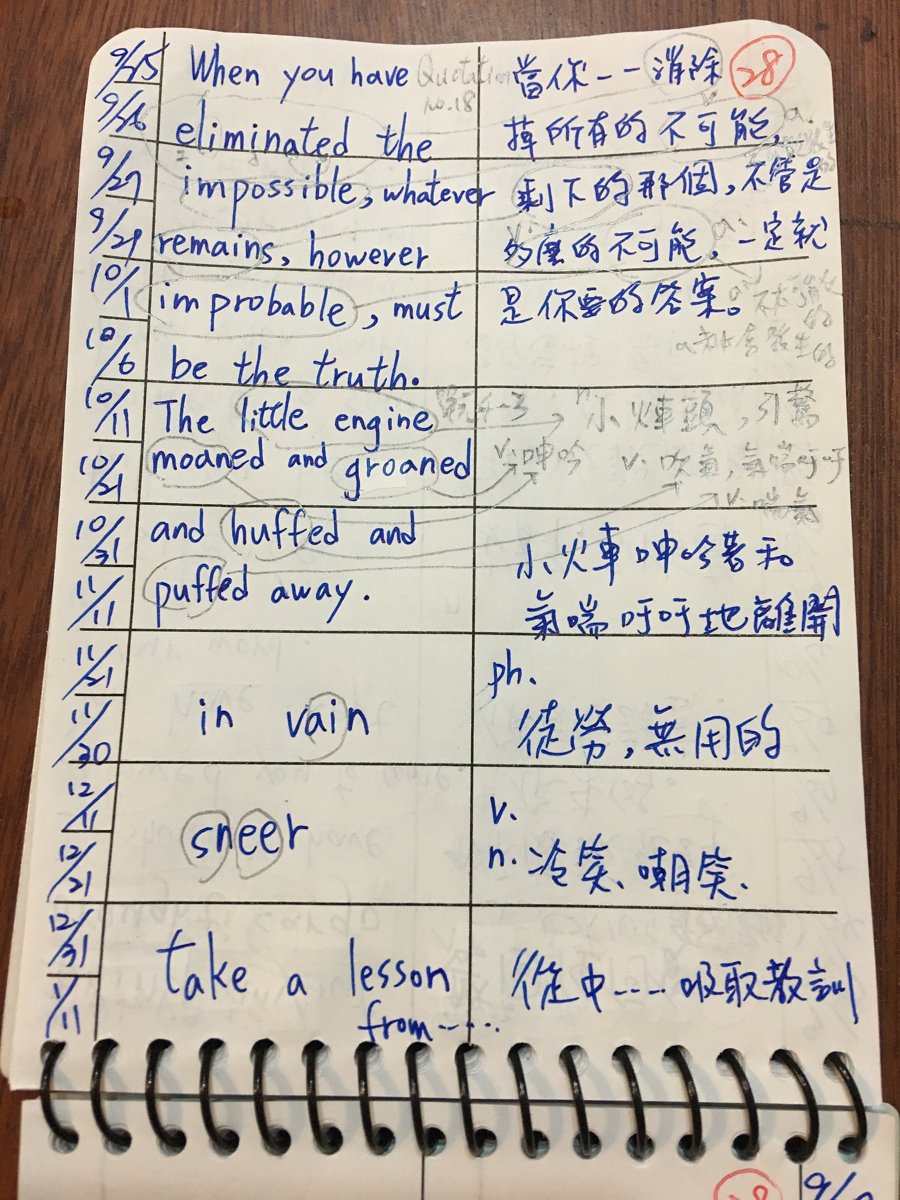 9/15 When you have Quotation 當你一一消除 28
no.18
9/26 eliminated the 掉所有的不可能,
9/27 impossible, whatever 剩下的那個,不管是
9/29 remains, however 多麼的不可能,一定就
10/1 improbable, must 是你要的答案。
10/6 be the truth.
10/11 The little engine n. 小火車頭, 引擎
10/21 moaned and groaned v. 呻吟 v. 吹氣, 氣喘吁吁
v. 喘氣
10/31 and huffed and 小火車呻吟著和
11/11 puffed away. 氣喘吁吁地離開
11/21 ph.
11/30 in vain 徒勞,無用的
12/11 v.
12/21 sneer n. 冷笑、嘲笑.
12/31 take a lesson 從中----吸取教訓
1/11 from-----
28 9/